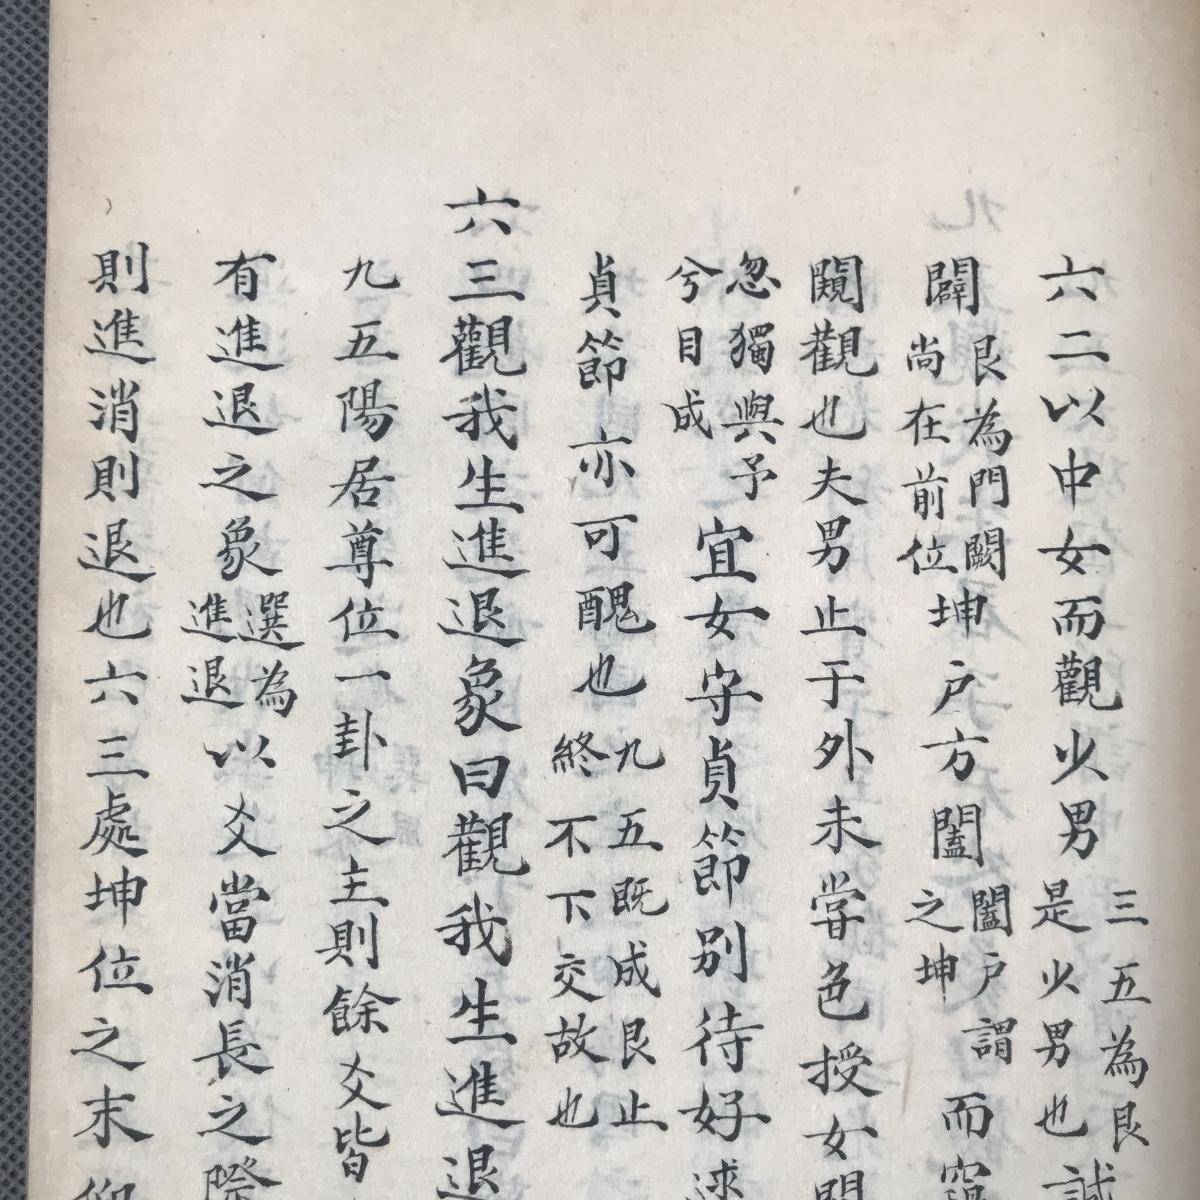 六二以中女而觀少男三五為艮是少男也誠
闢艮為門闕尚在前位坤戶方闔闔戶謂之坤而窺
覸觀也夫男止于外未嘗色授女
忽獨與予兮目成宜女守貞節別待好逑
貞節亦可醜也九五既成艮止終不下交故也
六三觀我生進退象曰觀我生進退
九五陽居尊位一卦之主則餘爻皆
有進退之象選為進退以爻當消長之際
則進消則退也六三處坤位之末